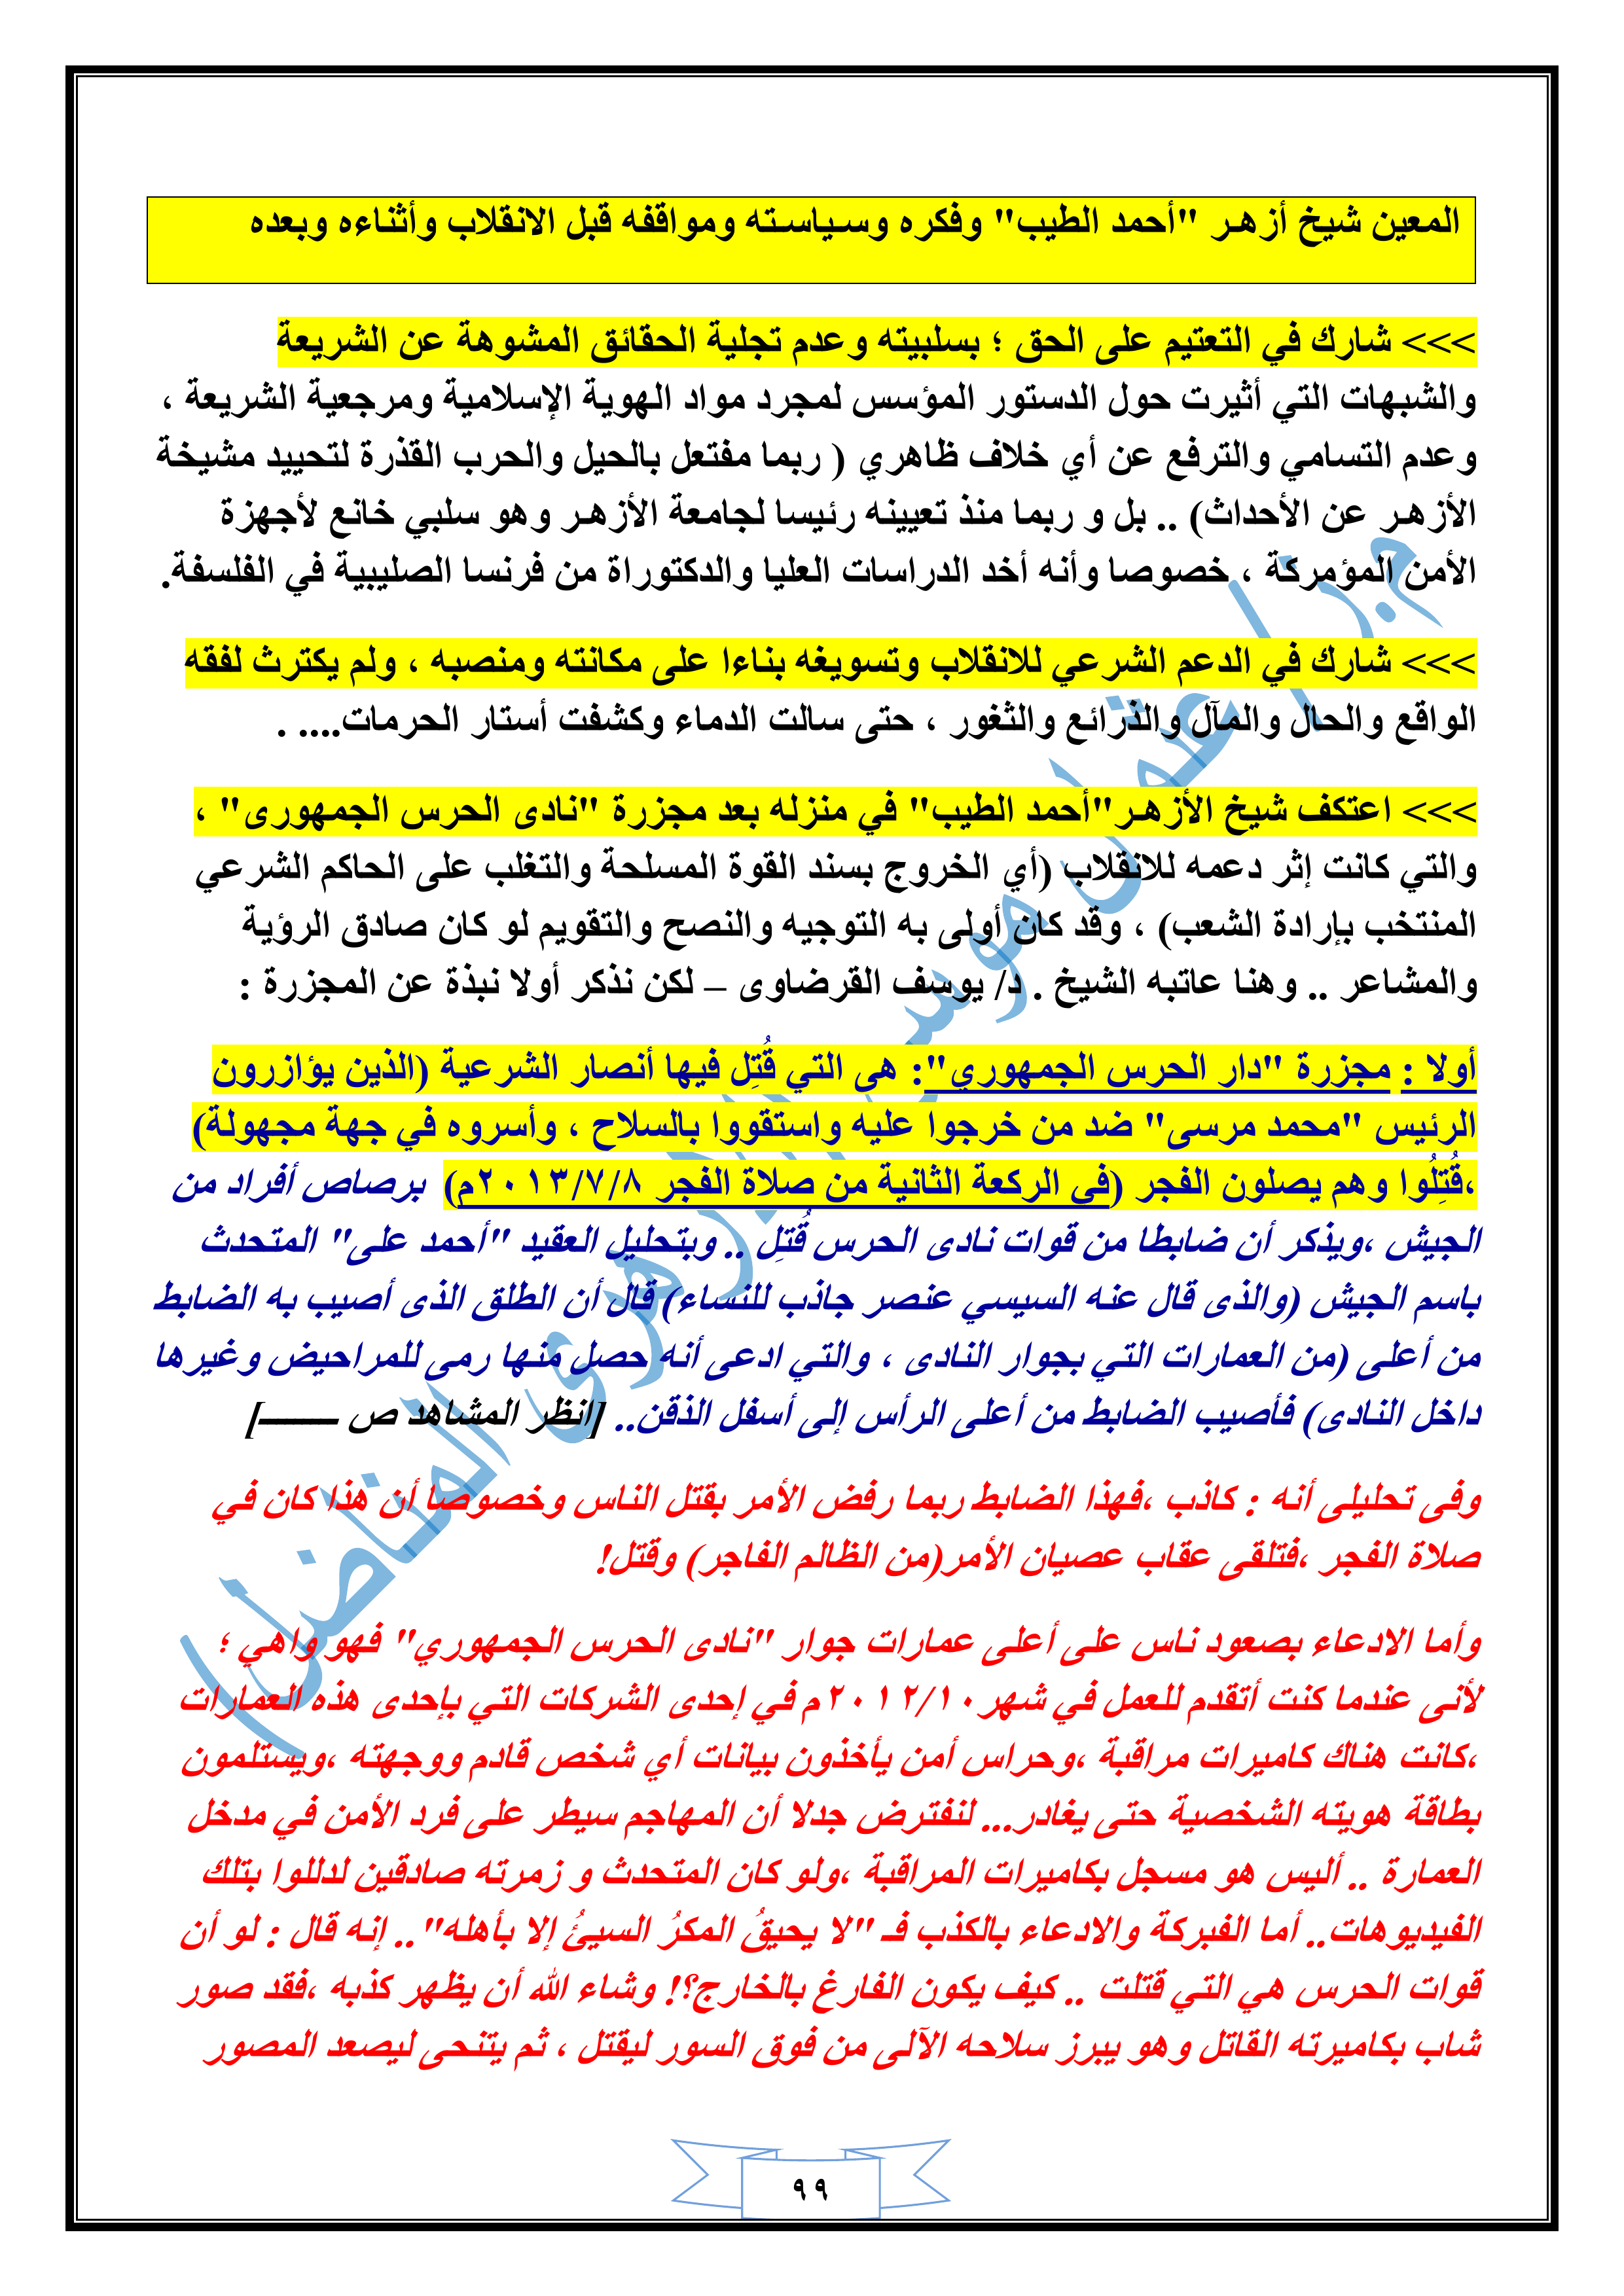 المعين شيخ أزهـر "أحمد الطيب" وفكره وسـياسـته ومواقفه قبل الانقلاب وأثناءه وبعده
>>> شارك في التعتيم على الحق ؛ بسلبيته وعدم تجلية الحقائق المشوهة عن الشريعة
والشبهات التي أثيرت حول الدستور المؤسس لمجرد مواد الهوية الإسلامية ومرجعية الشريعة ،
وعدم التسامي والترفع عن أي خلاف ظاهري ( ربما مفتعل بالحيل والحرب القذرة لتحييد مشيخة
الأزهـر عن الأحداث) .. بل و ربما منذ تعيينه رئيسا لجامعة الأزهـر وهو سلبي خانع لأجهزة
الأمن المؤمركة ، خصوصا وأنه أخد الدراسات العليا والدكتوراة من فرنسا الصليبية في الفلسفة.
>>> شارك في الدعم الشرعي للانقلاب وتسويغه بناءا على مكانته ومنصبه ، ولم يكترث لفقه
الواقع والحال والمآل والذرائع والثغور ، حتى سالت الدماء وكشفت أستار الحرمات.... .
>>> اعتكف شيخ الأزهـر"أحمد الطيب" في منزله بعد مجزرة "نادى الحرس الجمهورى" ،
والتي كانت إثر دعمه للانقلاب (أي الخروج بسند القوة المسلحة والتغلب على الحاكم الشرعي
المنتخب بإرادة الشعب) ، وقد كان أولى به التوجيه والنصح والتقويم لو كان صادق الرؤية
والمشاعر .. وهنا عاتبه الشيخ . د/ يوسف القرضاوى – لكن نذكر أولا نبذة عن المجزرة :
أولا : مجزرة "دار الحرس الجمهوري": هى التي قُتِل فيها أنصار الشرعية (الذين يؤازرون
الرئيس "محمد مرسى" ضد من خرجوا عليه واستقووا بالسلاح ، وأسروه في جهة مجهولة)
،قُتِلُوا وهم يصلون الفجر (فى الركعة الثانية من صلاة الفجر ٢٠١٣/٧/٨م) برصاص أفراد من
الجيش ،ويذكر أن ضابطا من قوات نادى الحرس قُتِل .. وبتحليل العقيد "أحمد على" المتحدث
باسم الجيش (والذى قال عنه السيسي عنصر جاذب للنساء) قال أن الطلق الذى أصيب به الضابط
من أعلى (من العمارات التي بجوار النادى ، والتي ادعى أنه حصل منها رمى للمراحيض وغيرها
داخل النادى) فأصيب الضابط من أعلى الرأس إلى أسفل الذقن.. [انظر المشاهد ص ـــــــــ]
وفى تحليلى أنه : كاذب ،فهذا الضابط ربما رفض الأمر بقتل الناس وخصوصا أن هذا كان في
صلاة الفجر ،فتلقى عقاب عصيان الأمر(من الظالم الفاجر) وقتل!
وأما الادعاء بصعود ناس على أعلى عمارات جوار "نادى الحرس الجمهوري" فهو واهي ؛
لأنى عندما كنت أتقدم للعمل في شهر٢٠١٢/١٠م في إحدى الشركات التي بإحدى هذه العمارات
،كانت هناك كاميرات مراقبة ،وحراس أمن يأخذون بيانات أي شخص قادم ووجهته ،ويستلمون
بطاقة هويته الشخصية حتى يغادر... لنفترض جدلا أن المهاجم سيطر على فرد الأمن في مدخل
العمارة .. أليس هو مسجل بكاميرات المراقبة ،ولو كان المتحدث و زمرته صادقين لدللوا بتلك
الفيديوهات.. أما الفبركة والادعاء بالكذب فـ "لا يحيقُ المكرُ السيئُ إلا بأهله".. إنه قال : لو أن
قوات الحرس هي التي قتلت .. كيف يكون الفارغ بالخارج؟! وشاء الله أن يظهر كذبه ،فقد صور
شاب بكاميرته القاتل وهو يبرز سلاحه الآلى من فوق السور ليقتل ، ثم يتنحى ليصعد المصور
٩٩